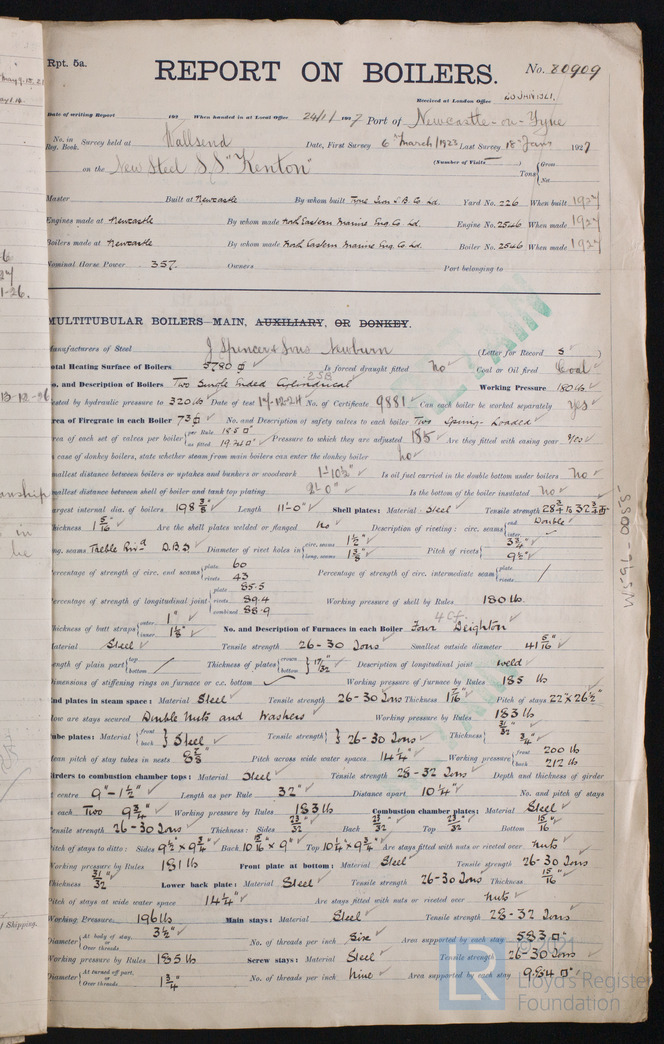 Rpt. 5a.
REPORT ON BOILERS.
No. 80909
Received at London Office
Date of writing Report 192 When handed in at Local Office 24/1/1927 Port of Newcastle-on-Tyne
No. in Reg. Book. Survey held at Wallsend Date, First Survey 6th March/1923 Last Survey 18th Jany 1927
on the New Steel S/S "Kenton" (Number of Visits) Tons Gross Net
Master Built at Newcastle By whom built Tyne Iron S.B. Co Ld. Yard No. 226 When built 1927
Engines made at Newcastle By whom made North Eastern Marine Eng. Co Ld. Engine No. 2546 When made 1927
Boilers made at Newcastle By whom made North Eastern Marine Eng. Co Ld. Boiler No. 2546 When made 1927
Nominal Horse Power 357 Owners Port belonging to
MULTITUBULAR BOILERS MAIN, AUXILIARY, OR DONKEY.
Manufacturers of Steel J Spencer & Sons Newburn (Letter for Record S)
Total Heating Surface of Boilers 5780 Is forced draught fitted No Coal or Oil fired Coal
No. and Description of Boilers Two Single Ended Cylindrical 2SB Working Pressure 180 lb.
Tested by hydraulic pressure to 320 lb Date of test 17-12-24 No. of Certificate 9881 Can each boiler be worked separately Yes
Area of Firegrate in each Boiler 73 No. and Description of safety valves to each boiler Two Spring-Loaded
Area of each set of valves per boiler per Rule 18.5 as fitted 19.24 Pressure to which they are adjusted 185 Are they fitted with easing gear Yes
In case of donkey boilers, state whether steam from main boilers can enter the donkey boiler No
Smallest distance between boilers or uptakes and bunkers or woodwork 1'-10½" Is oil fuel carried in the double bottom under boilers No
Smallest distance between shell of boiler and tank top plating 2'-0" Is the bottom of the boiler insulated No
Largest internal dia. of boilers 198 3/8" Length 11'-0" Shell plates: Material Steel Tensile strength 28¾ to 32¾
Thickness 1 5/16" Are the shell plates welded or flanged No Description of riveting: circ. seams end Double inter.
long. seams Treble Riv. D.B.S Diameter of rivet holes in circ. seams 1½" long. seams 1 3/8" Pitch of rivets 3¾" 9½"
Percentage of strength of circ. end seams plate 60 rivets 43 Percentage of strength of circ. intermediate seam plate rivets
Percentage of strength of longitudinal joint plate 85.5 rivets 89.4 combined 88.9 Working pressure of shell by Rules 180 lb
Thickness of butt straps outer 1" inner 1 1/8" No. and Description of Furnaces in each Boiler Four Deighton 4 Cf.
Material Steel Tensile strength 26-30 Tons Smallest outside diameter 41 5/16"
Length of plain part top bottom Thickness of plates crown bottom 17/32" Description of longitudinal joint weld
Dimensions of stiffening rings on furnace or c.c. bottom Working pressure of furnace by Rules 185 lb
End plates in steam space: Material Steel Tensile strength 26-30 Tons Thickness 1 7/16" Pitch of stays 22" x 26½"
How are stays secured Double Nuts and Washers Working pressure by Rules 183 lb
Tube plates: Material front back Steel Tensile strength 26-30 Tons Thickness 31/32" ¾"
Mean pitch of stay tubes in nests Pitch across wide water spaces 14¼" Working pressure front 200 lb back 212 lb
Girders to combustion chamber tops: Material Steel Tensile strength 28-32 Tons Depth and thickness of girder
at centre 9"-1½" Length as per Rule 32" Distance apart 10¼" No. and pitch of stays
in each Two 9¾" Working pressure by Rules 183 lb Combustion chamber plates: Material Steel
Tensile strength 26-30 Tons Thickness: Sides 23/32" Back 23/32" Top 23/32" Bottom 15/16"
Pitch of stays to ditto: Sides 9½" x 9¾" Back 10 15/16" x 9" Top 10¼" x 9¾" Are stays fitted with nuts or riveted over nuts
Working pressure by Rules 181 lb Front plate at bottom: Material Steel Tensile strength 26-30 Tons
Thickness 31/32" Lower back plate: Material Steel Tensile strength 26-30 Tons Thickness 15/16"
Pitch of stays at wide water space 14¼" Are stays fitted with nuts or riveted over nuts
Working Pressure 196 lb Main stays: Material Steel Tensile strength 28-32 Tons
Diameter At body of stay, or Over threads 3½" No. of threads per inch Six Area supported by each stay 583
Working pressure by Rules 185 lb Screw stays: Material Steel Tensile strength 26-30 Tons
Diameter At turned off part, or Over threads 1¾" No. of threads per inch Nine Area supported by each stay 98.4
RETAIN
W597-0055
© 2021
LR
Lloyd's Register
Foundation